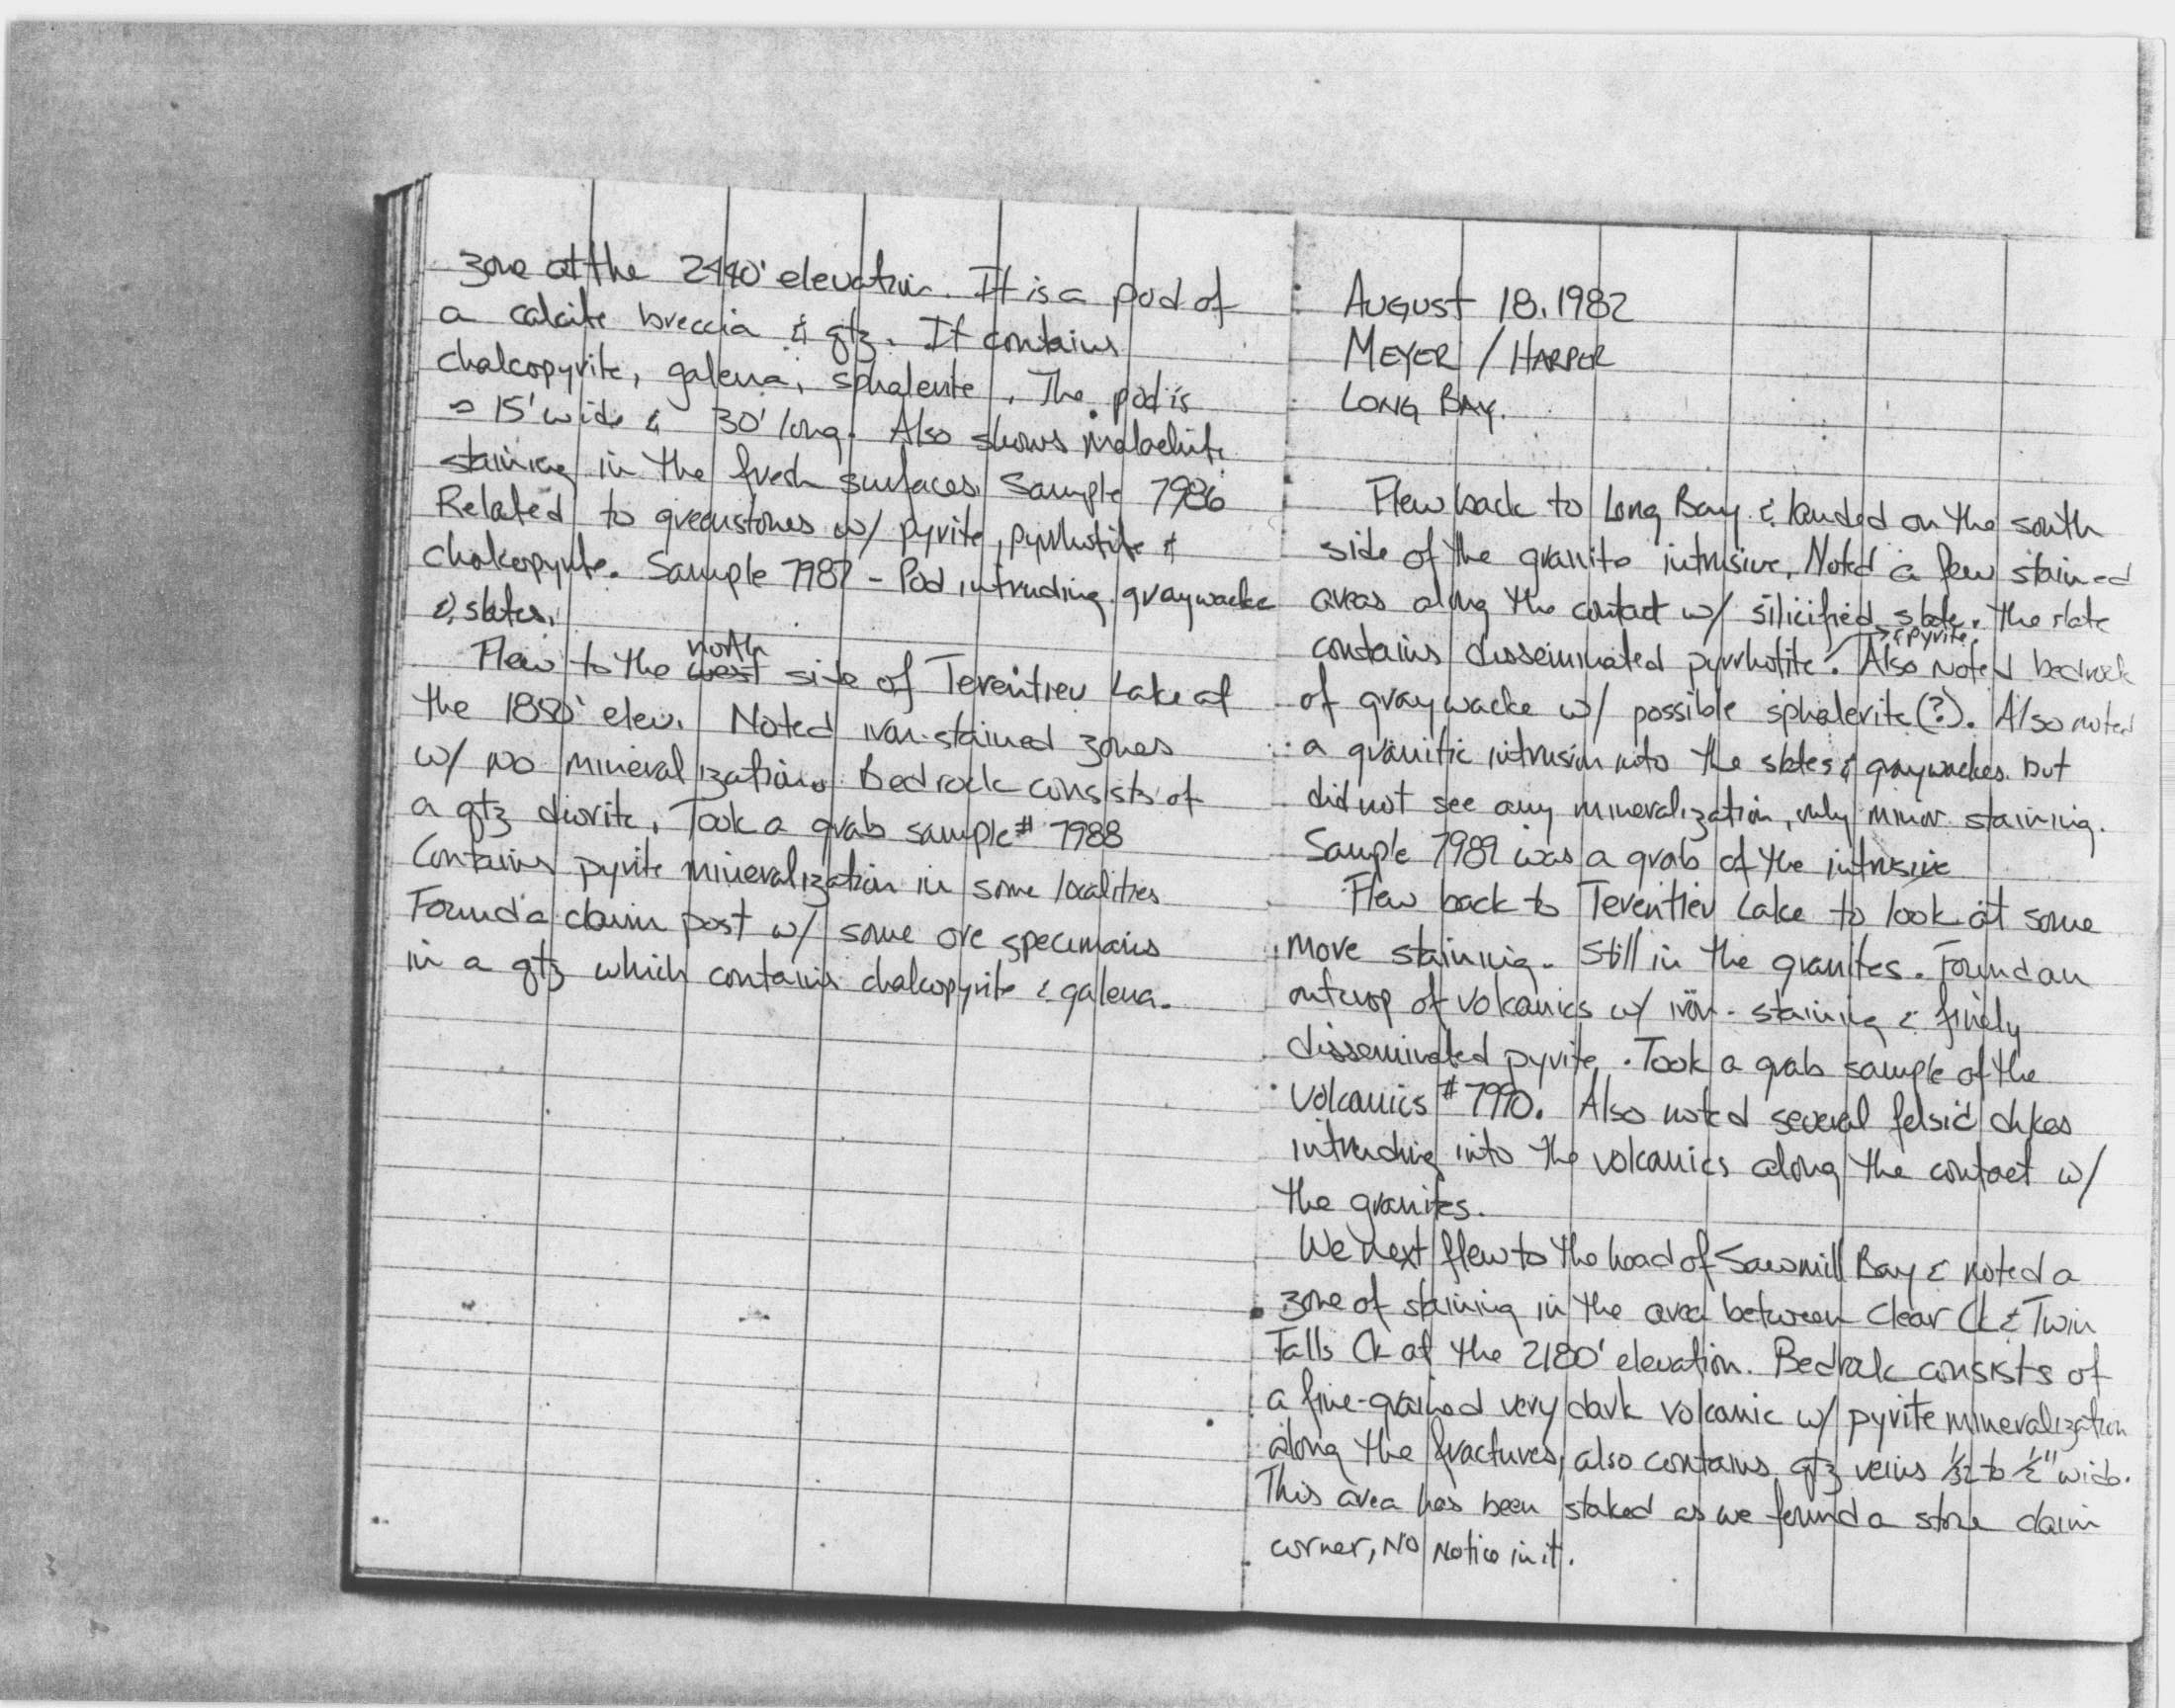 zone at the 2440' elevation. It is a pod of
a calcite breccia & qtz. It contains
chalcopyrite, galena, sphalerite. The pod is
≈ 15' wide & 30' long. Also shows malachite
staining in the fresh surfaces. Sample 7986
Related to greenstones w/ pyrite, pyrrhotite &
chalcopyrite. Sample 7987 - Pod intruding graywacke
& slates.
north
Flew to the west side of Terentiev Lake at
the 1880' elev. Noted iron-stained zones
w/ no mineralization. Bedrock consists of
a qtz diorite. Took a grab sample # 7988
Contains pyrite mineralization in some localities
Found a claim post w/ some ore specimans
in a qtz which contains chalcopyrite & galena.
AUGUST 18, 1982
MEYER / HARPER
LONG BAY.
Flew back to Long Bay & landed on the south
side of the granite intrusive. Noted a few stained
areas along the contact w/ silicified slate. The slate
& pyrite.
contains disseminated pyrrhotite. Also noted bedrock
of graywacke w/ possible sphalerite (?). Also noted
a granitic intrusion into the slates & graywackes but
did not see any mineralization, only minor staining.
Sample 7989 was a grab of the intrusive
Flew back to Terentiev Lake to look at some
more staining. Still in the granites. Found an
outcrop of volcanics w/ iron-staining & finely
disseminated pyrite. Took a grab sample of the
volcanics # 7990. Also noted several felsic dikes
intruding into the volcanics along the contact w/
the granites.
We next flew to the head of Sawmill Bay & noted a
zone of staining in the area between Clear Ck & Twin
Falls Ck at the 2180' elevation. Bedrock consists of
a fine-grained very dark volcanic w/ pyrite mineralization
along the fractures, also contains qtz veins 1/32 to 1/2" wide.
This area has been staked as we found a stone claim
corner, No Notice in it.